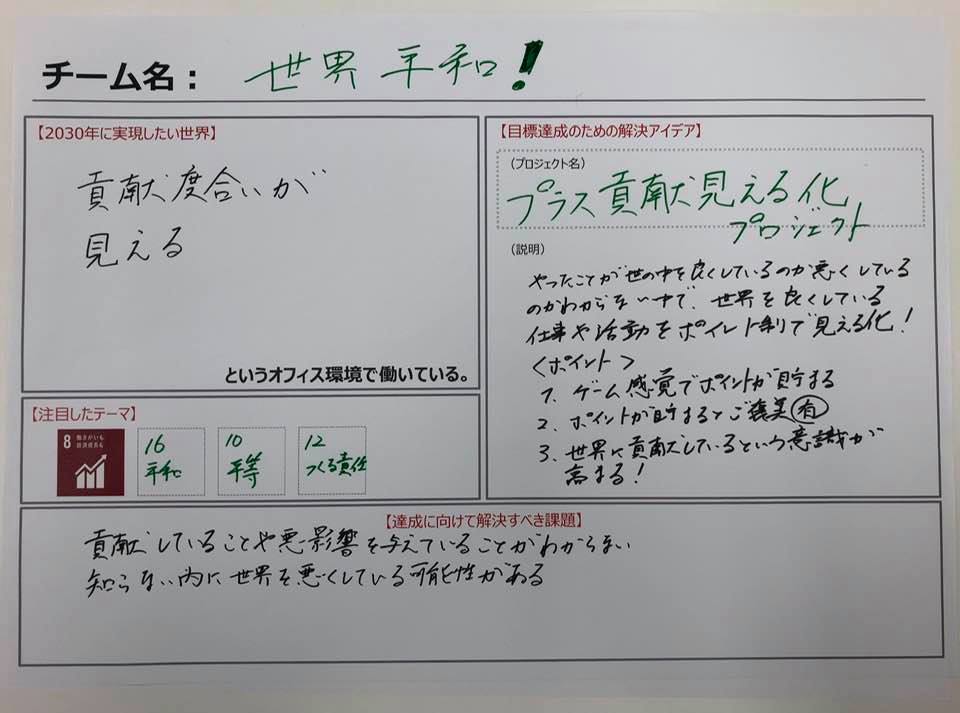 チーム名： 世界平和！
【2030年に実現したい世界】
貢献度合いが
見える
というオフィス環境で働いている。
【注目したテーマ】
8 働きがいも
経済成長も
16
平和
10
平等
12
つくる責任
【目標達成のための解決アイデア】
（プロジェクト名）
プラス貢献見える化
プロジェクト
（説明）
やったことが世の中を良くしているのか悪くしている
のかわからない中で、世界を良くしている
仕事や活動をポイント制で見える化！
＜ポイント＞
1. ゲーム感覚でポイントが貯まる
2. ポイントが貯まるとご褒美有
3. 世界に貢献しているという意識が
高まる！
【達成に向けて解決すべき課題】
貢献していることや悪影響を与えていることがわからない
知らない内に世界を悪くしている可能性がある